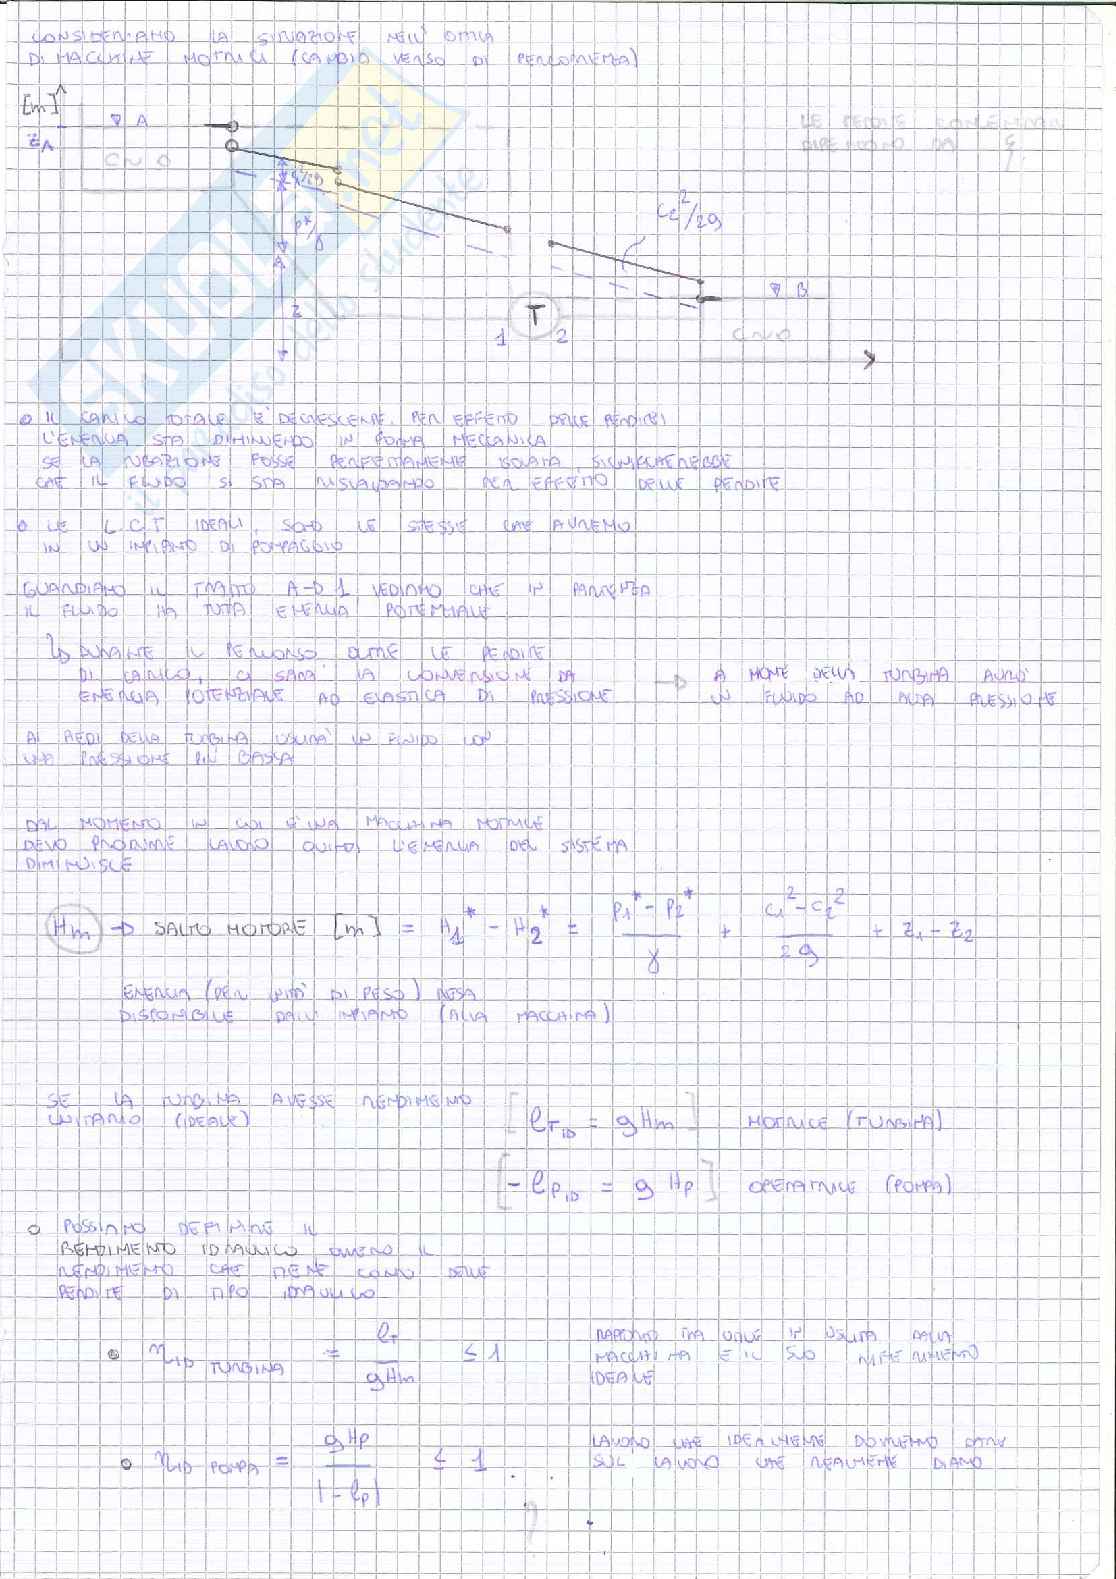 CONSIDERIAMO LA SITUAZIONE NELL' OTTICA
DI MACCHINE MOTRICI (CAMBIO VERSO DI PERCORRENZA)
[m]
A
ZA
C~0
LE PERDITE CONCENTRATE
DIPENDONO DA
c²/2g
p*/γ
z
C2²/2g
B
T
1 2
C~0
SKUOLA.net
il paradiso dello studente
IL CARICO TOTALE E' DECRESCENTE PER EFFETTO DELLE PERDITE
L'ENERGIA STA DIMINUENDO IN FORMA MECCANICA
SE LA TUBAZIONE FOSSE PERFETTAMENTE ISOLATA, SIGNIFICHEREBBE
CHE IL FLUIDO SI STA RISCALDANDO PER EFFETTO DELLE PERDITE
LE L.C.T IDEALI, SONO LE STESSE CHE AVREMO
IN UN IMPIANTO DI POMPAGGIO
GUARDIAMO IL TRATTO A→1 VEDIAMO CHE IN PARTENZA
IL FLUIDO HA TUTTA ENERGIA POTENZIALE
↳ DURANTE IL PERCORSO OLTRE LE PERDITE
DI CARICO, CI SARA' LA CONVERSIONE DA
ENERGIA POTENZIALE AD ELASTICA DI PRESSIONE
→ A MONTE DELLA TURBINA AVRO'
UN FLUIDO AD ALTA PRESSIONE
AI PIEDI DELLA TURBINA USCIRA' UN FLUIDO CON
UNA PRESSIONE PIU' BASSA
DAL MOMENTO IN CUI E' UNA MACCHINA MOTRICE
DEVO PRODURRE LAVORO QUINDI L'ENERGIA DEL SISTEMA
DIMINUISCE
Hm → SALTO MOTORE [m] = H1* - H2* = (p1* - p2*)/γ + (c1² - c2²)/2g + z1 - z2
ENERGIA (PER UNITA' DI PESO) RESA
DISPONIBILE DALL'IMPIANTO (ALLA MACCHINA)
SE LA TURBINA AVESSE RENDIMENTO
UNITARIO (IDEALE)
[lT ID = gHm] MOTRICE (TURBINA)
[-lP ID = g Hp] OPERATRICE (POMPA)
POSSIAMO DEFINIRE IL
RENDIMENTO IDRAULICO OVVERO IL
RENDIMENTO CHE TIENE CONTO DELLE
PERDITE DI TIPO IDRAULICO
ηID TURBINA = lT/gHm ≤ 1
RAPPORTO TRA UTILE IN USCITA DALLA
MACCHINA E IL SUO RIFERIMENTO
IDEALE
ηID POMPA = gHp/|-lp| ≤ 1
LAVORO CHE IDEALMENTE DOVREMMO DARE
SUL LAVORO CHE REALMENTE DIAMO